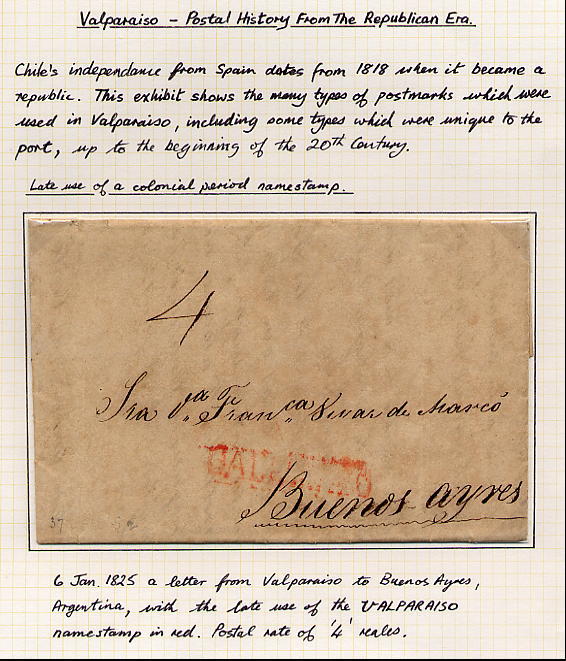 Valparaiso – Postal History From The Republican Era.
Chile's independance from Spain dates from 1818 when it became a
republic. This exhibit shows the many types of postmarks which were
used in Valparaiso, including some types which were unique to the
port, up to the beginning of the 20th Century.
Late use of a colonial period namestamp.
4
Sra Da Franca Vivar de Marcó
VALPARAISO
Buenos ayres
37
6 Jan. 1825 a letter from Valparaiso to Buenos Ayres,
Argentina, with the late use of the VALPARAISO
namestamp in red. Postal rate of '4' reales.